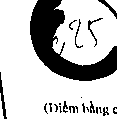 8,25
(Điểm bằng c